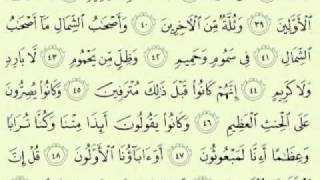 ٱلْأَوَّلِينَ ٣٩ وَثُلَّةٌ مِّنَ ٱلْآخِرِينَ ٤٠ وَأَصْحَٰبُ ٱلشِّمَالِ مَآ أَصْحَٰبُ
ٱلشِّمَالِ ٤١ فِى سَمُومٍ وَحَمِيمٍ ٤٢ وَظِلٍّ مِّن يَحْمُومٍ ٤٣ لَّا بَارِدٍ
وَلَا كَرِيمٍ ٤٤ إِنَّهُمْ كَانُوا۟ قَبْلَ ذَٰلِكَ مُتْرَفِينَ ٤٥ وَكَانُوا۟ يُصِرُّونَ
عَلَى ٱلْحِنثِ ٱلْعَظِيمِ ٤٦ وَكَانُوا۟ يَقُولُونَ أَئِذَا مِتْنَا وَكُنَّا تُرَابًا
وَعِظَٰمًا أَءِنَّا لَمَبْعُوثُونَ ٤٧ أَوَءَابَآؤُنَا ٱلْأَوَّلُونَ ٤٨ قُلْ إِنَّ